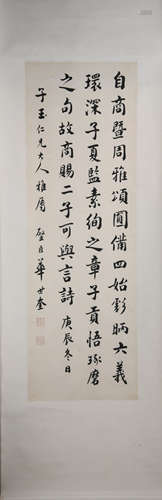 自商暨周雅頌圓備四始彪炳六義
環深子夏監素絢之章子貢悟琢磨
之句故商賜二子可與言詩 庚辰冬日
子玉仁兄大人雅屬 璧臣華世奎